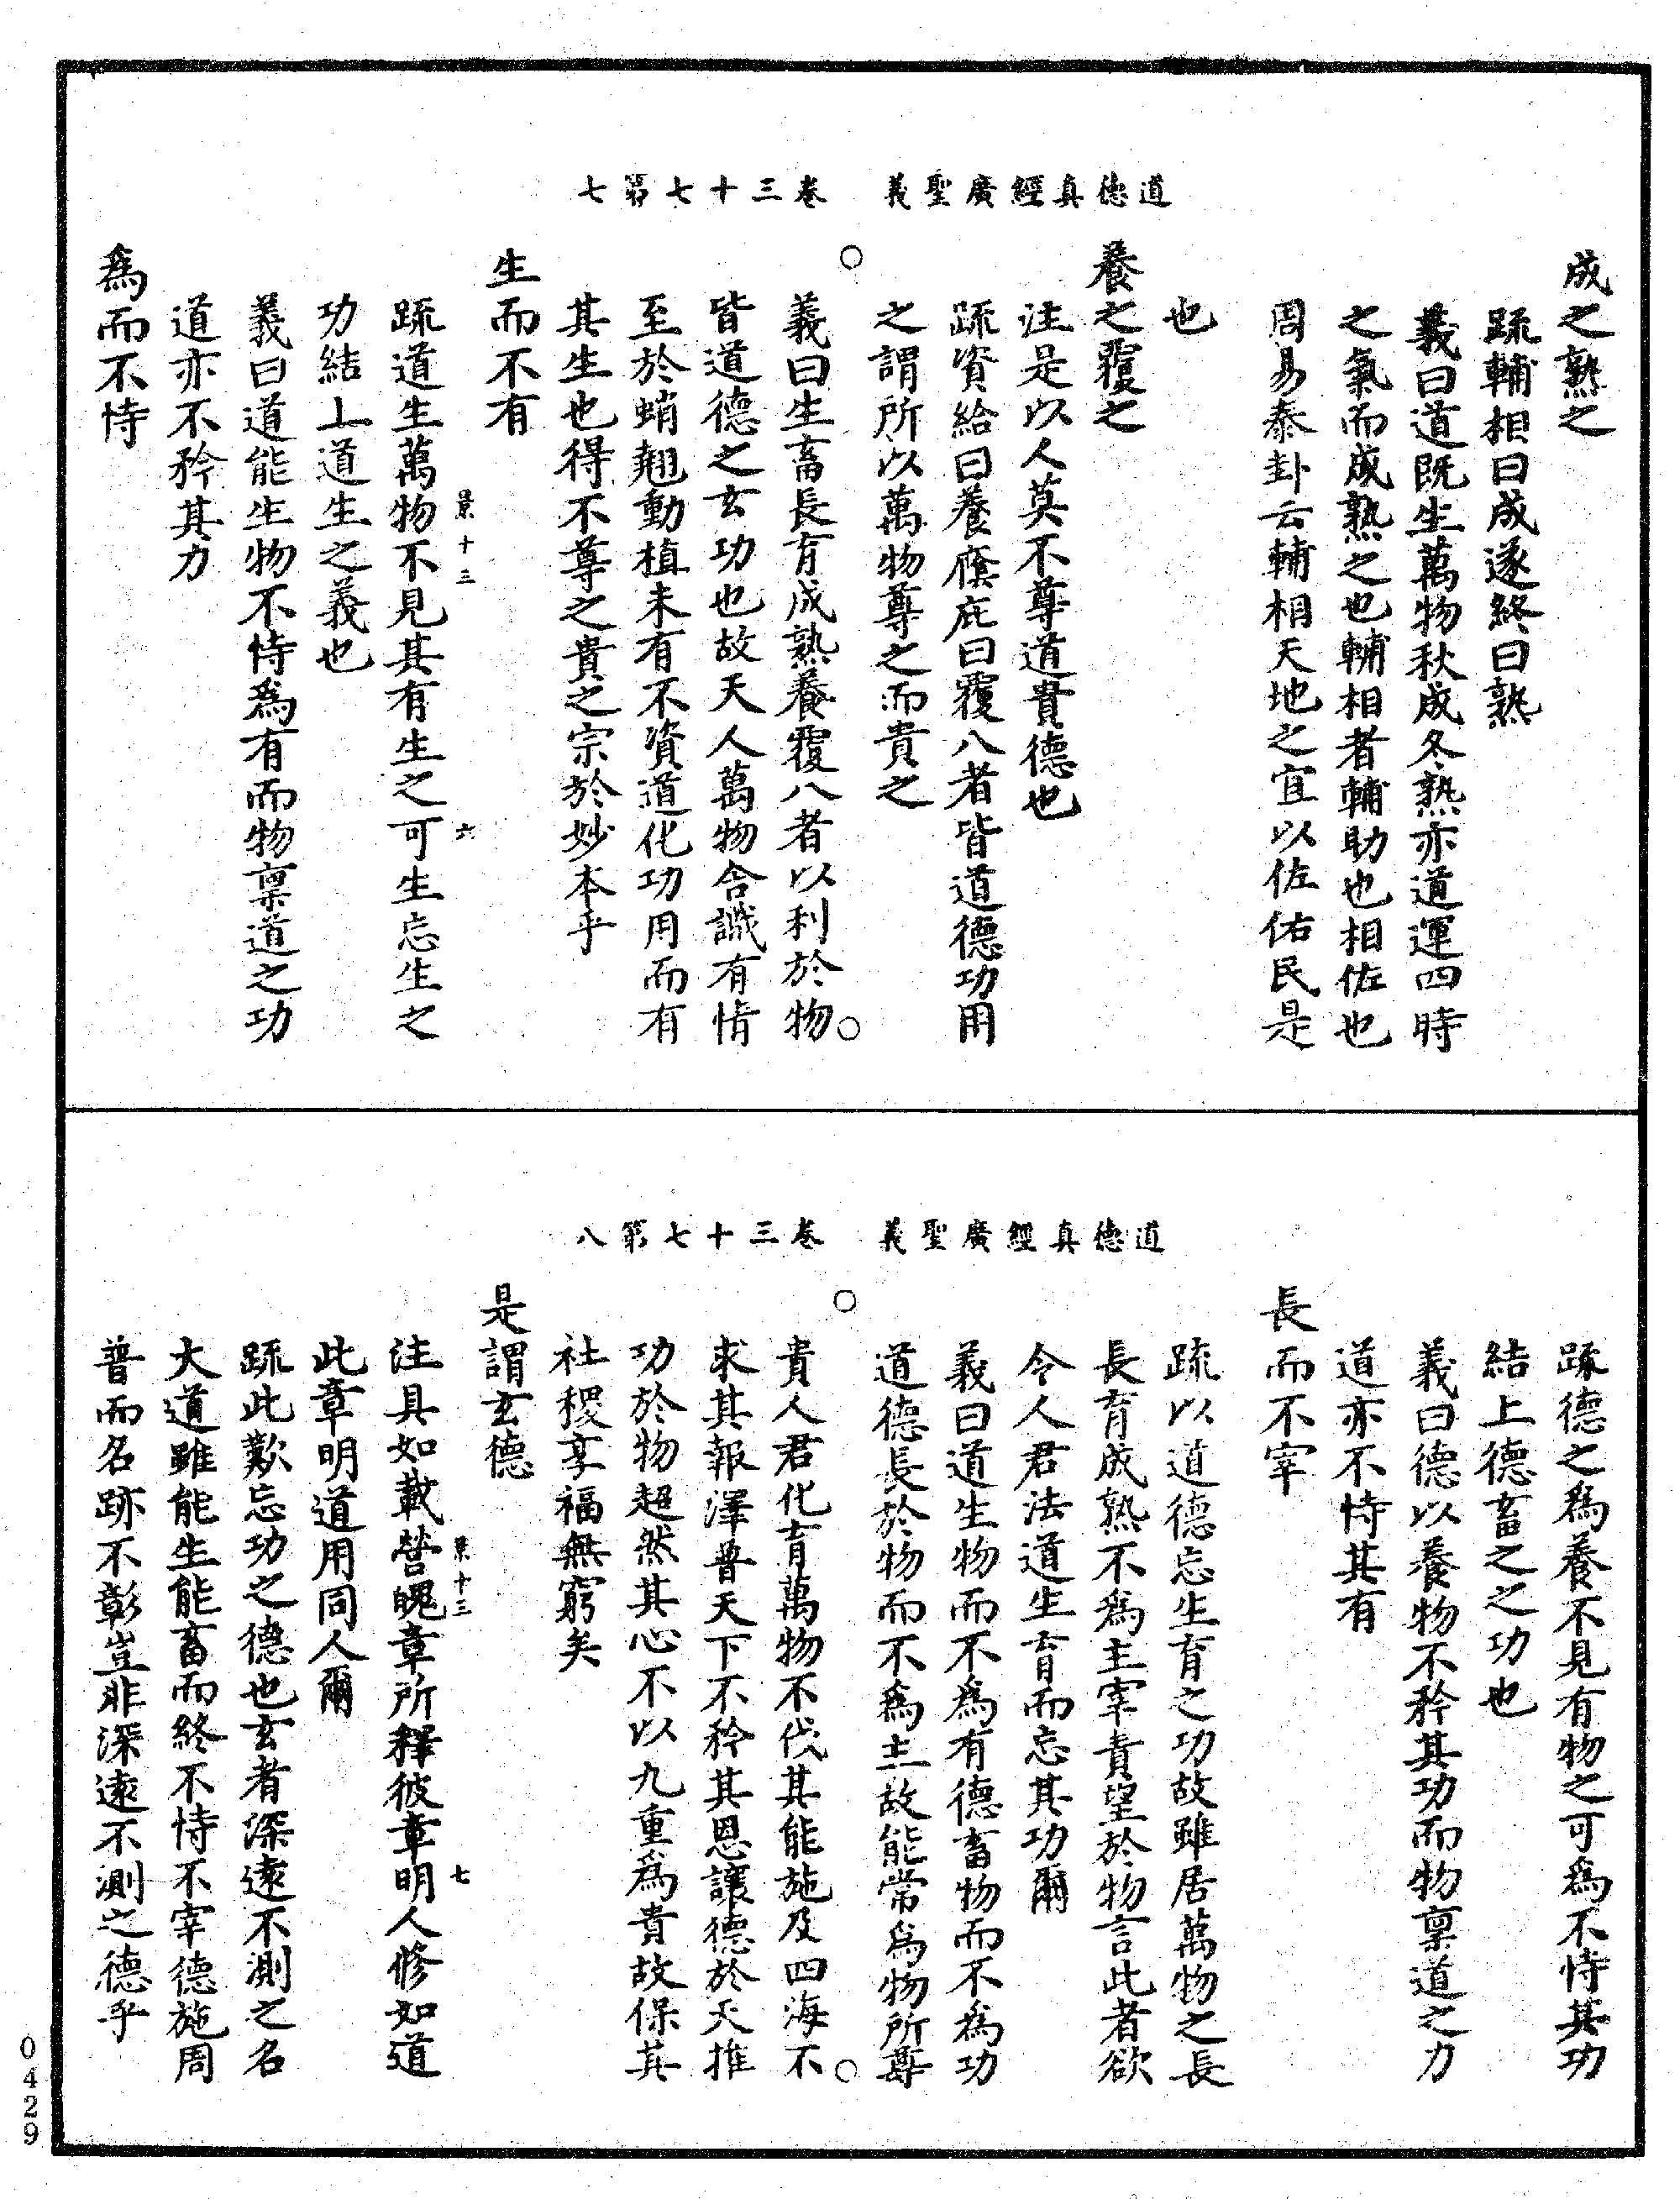 道德真經廣聖義　卷三十七第七
成之熟之
疏輔相曰成遂終曰熟
義曰道既生萬物秋成冬熟亦道運四時
之氣而成熟之也輔相者輔助也相佐也
周易泰卦云輔相天地之宜以佐佑民是
也
養之覆之
注是以人莫不尊道貴德也
疏資給曰養廕庇曰覆八者皆道德功用
之謂所以萬物尊之而貴之
義曰生畜長育成熟養覆八者以利於物
皆道德之玄功也故天人萬物含識有情
至於蛸翹動植未有不資道化功用而有
其生也得不尊之貴之宗於妙本乎
生而不有
疏道生萬物不見其有生之可生忘生之
景十三　六
功結上道生之義也
義曰道能生物不恃為有而物稟道之功
道亦不矜其力
為而不恃
道德真經廣聖義　卷三十七第八
疏德之為養不見有物之可為不恃其功
結上德畜之之功也
義曰德以養物不矜其功而物稟道之力
道亦不恃其有
長而不宰
疏以道德忘生育之功故雖居萬物之長
長育成熟不為主宰責望於物言此者欲
令人君法道生育而忘其功爾
義曰道生物而不為有德畜物而不為功
道德長於物而不為主故能常為物所尊
貴人君化育萬物不伐其能施及四海不
求其報澤普天下不矜其恩讓德於天推
功於物超然其心不以九重為貴故保其
社稷享福無窮矣
是謂玄德
注具如載營魄章所釋彼章明人修如道
景十三　七
此章明道用同人爾
疏此歎忘功之德也玄者深遠不測之名
大道雖能生能畜而終不恃不宰德施周
普而名跡不彰豈非深遠不測之德乎
0429